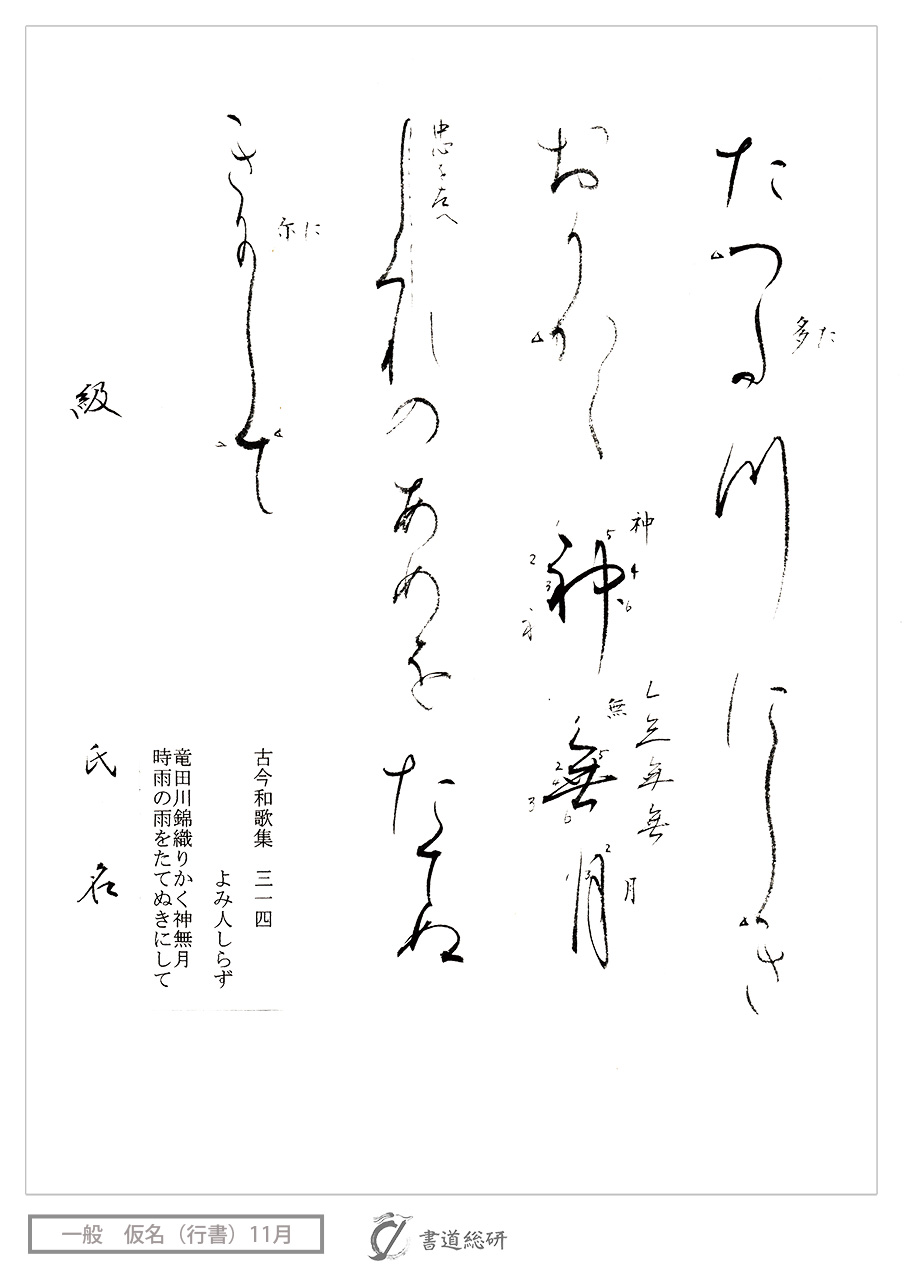 たつた川にしき
多た
おりかく神無月
神
無
月
しくれのあめをたてぬ
し
きにして
尓に
級
氏名
古今和歌集　三一四
よみ人しらず
竜田川錦織りかく神無月
時雨の雨をたてぬきにして
一般　仮名（行書）11月
書道総研